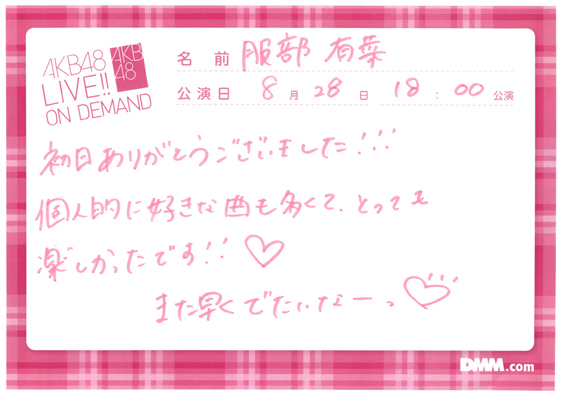 AKB48
LIVE!!
ON DEMAND
AKB
48
名前 服部 有菜
公演日 8月28日 18:00公演
初日ありがとうございました!!!
個人的に好きな曲も多くて、とっても
楽しかったです!!♡
また早くでたいなーっ♡
DMM.com